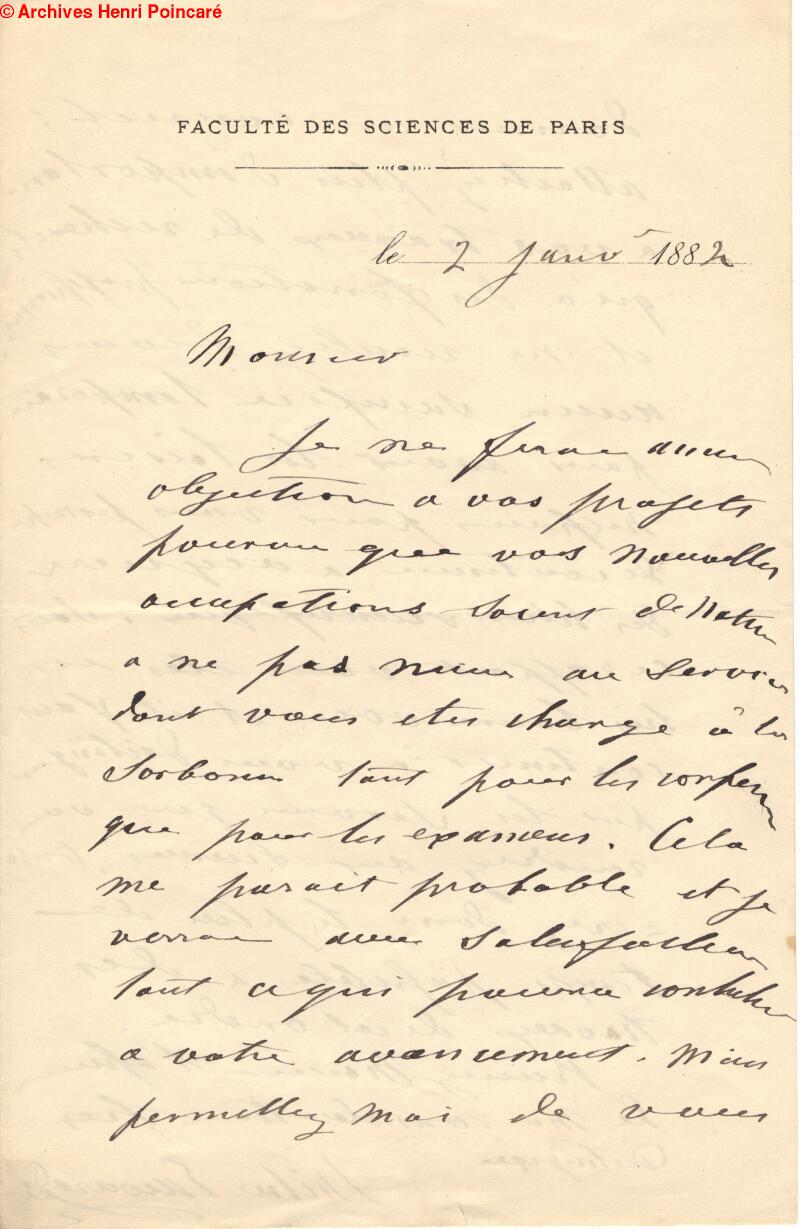 © Archives Henri Poincaré
FACULTÉ DES SCIENCES DE PARIS
le 2 Janvr 1882
Monsieur
Je ne ferai aucune
objection a vos projets
pourvu que vos nouvelles
occupations soient de nature
a ne pas nuire au service
dont vous etes charge à la
Sorbonne tant pour les conferences
que pour les examens. Cela
me parait probable et je
verrai avec satisfaction
tout ce qui pourra contribuer
a votre avancement. Mais
permettez moi de vous